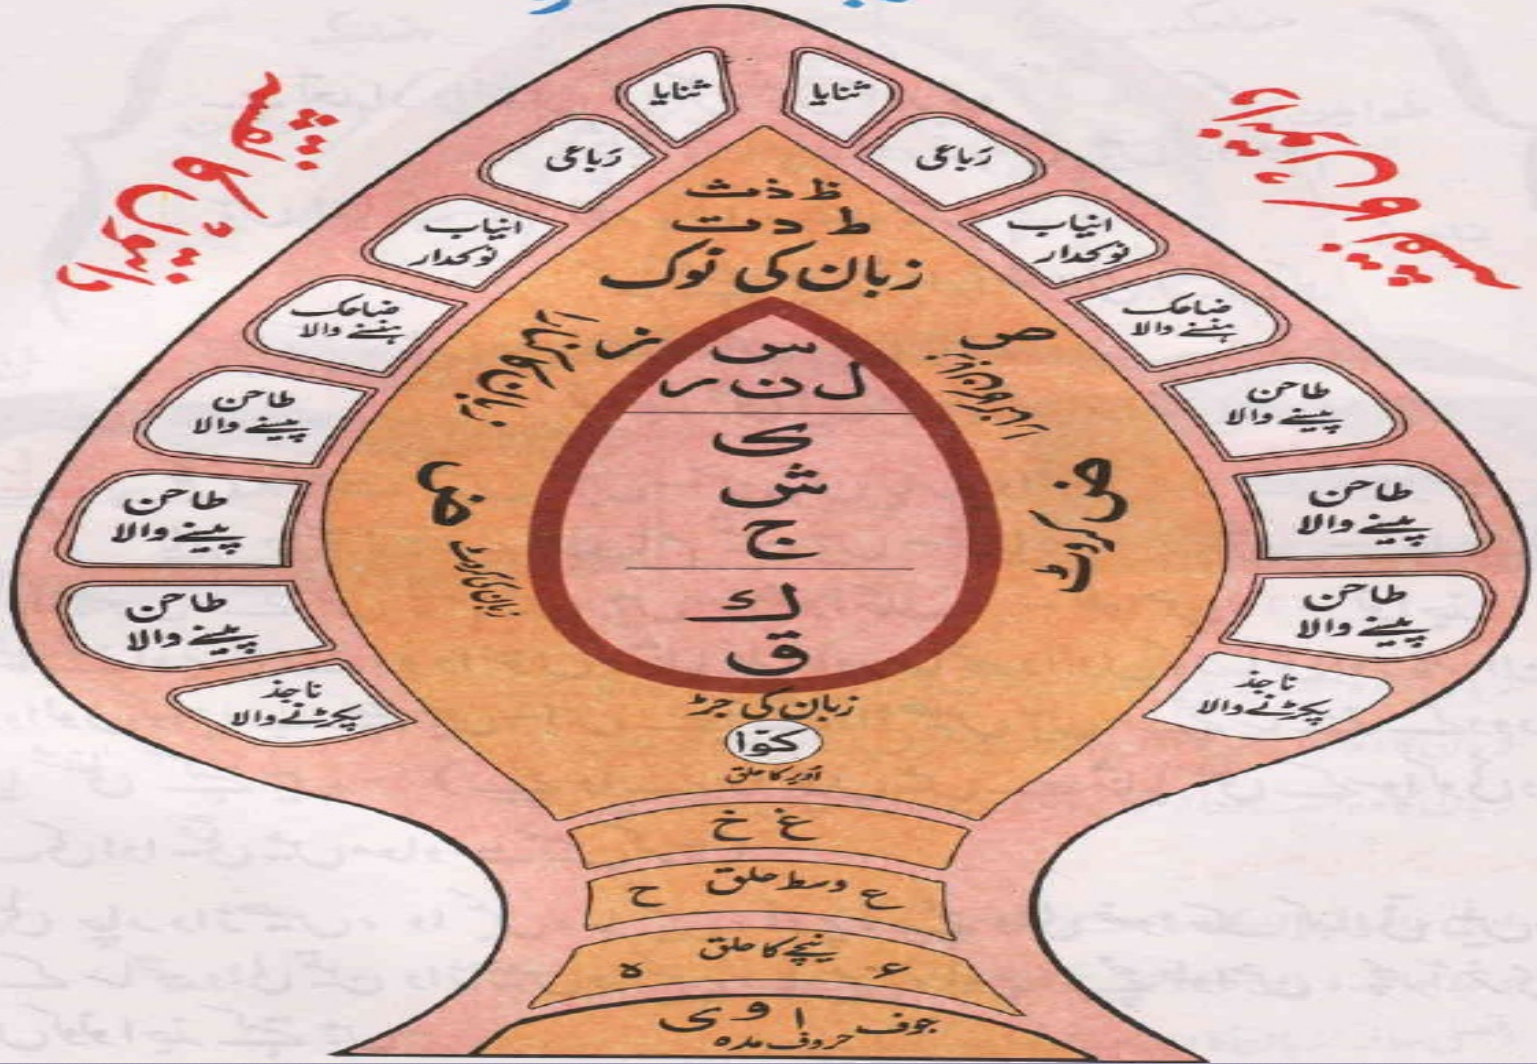 ثنایا
ثنایا
رَباعی
رَباعی
انیاب
نوکدار
انیاب
نوکدار
ضاحک
ہنسنے والا
ضاحک
ہنسنے والا
طاحن
پیسنے والا
طاحن
پیسنے والا
طاحن
پیسنے والا
طاحن
پیسنے والا
طاحن
پیسنے والا
طاحن
پیسنے والا
ناجذ
پکڑنے والا
ناجذ
پکڑنے والا
ظ ذ ث
ط د ت
زبان کی نوک
ص
ز
س
ل ن ر
ی
ش
ج
ك
ق
ض کروٹ
ض
زبان کی کروٹ
زبان کی جڑ
کوّا
اُوپر کا حلق
غ خ
ع وسط حلق ح
نیچے کا حلق
ء ہ
جوف ا و ی
حروف مدہ